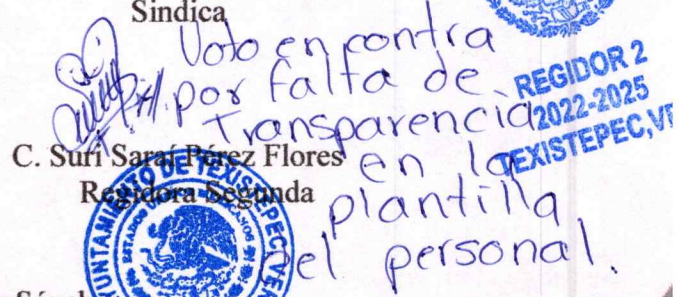 Sindica
Voto en contra
por falta de
Transparencia
en la
plantilla
del personal.
REGIDOR 2
2022-2025
TEXISTEPEC, VE
C. Suri Saraí Pérez Flores
Regidora Segunda
AYUNTAMIENTO DE TEXISTEPEC, VER